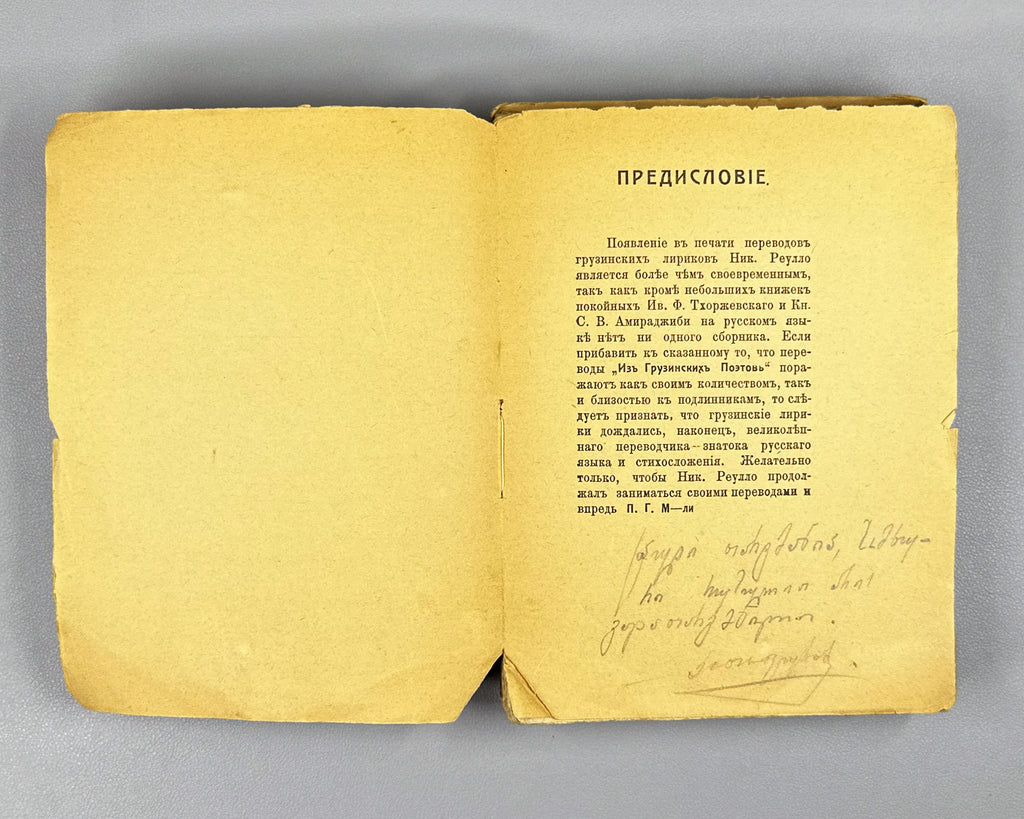 ПРЕДИСЛОВІЕ.
Появленіе въ печати переводовъ
грузинскихъ лириковъ Ник. Реулло
является болѣе чѣмъ своевременнымъ,
такъ какъ кромѣ небольшихъ книжекъ
покойныхъ Ив. Ф. Тхоржевскаго и Кн.
С. В. Амираджиби на русскомъ язы-
кѣ нѣтъ ни одного сборника. Если
прибавить къ сказанному то, что пере-
воды „Изъ Грузинскихъ Поэтовъ“ пора-
жаютъ какъ своимъ количествомъ, такъ
и близостью къ подлинникамъ, то слѣ-
дуетъ признать, что грузинскіе лири-
ки дождались, наконецъ, великолѣп-
наго переводчика—знатока русскаго
языка и стихосложенія. Желательно
только, чтобы Ник. Реулло продол-
жалъ заниматься своими переводами и
впредь П. Г. М—ли